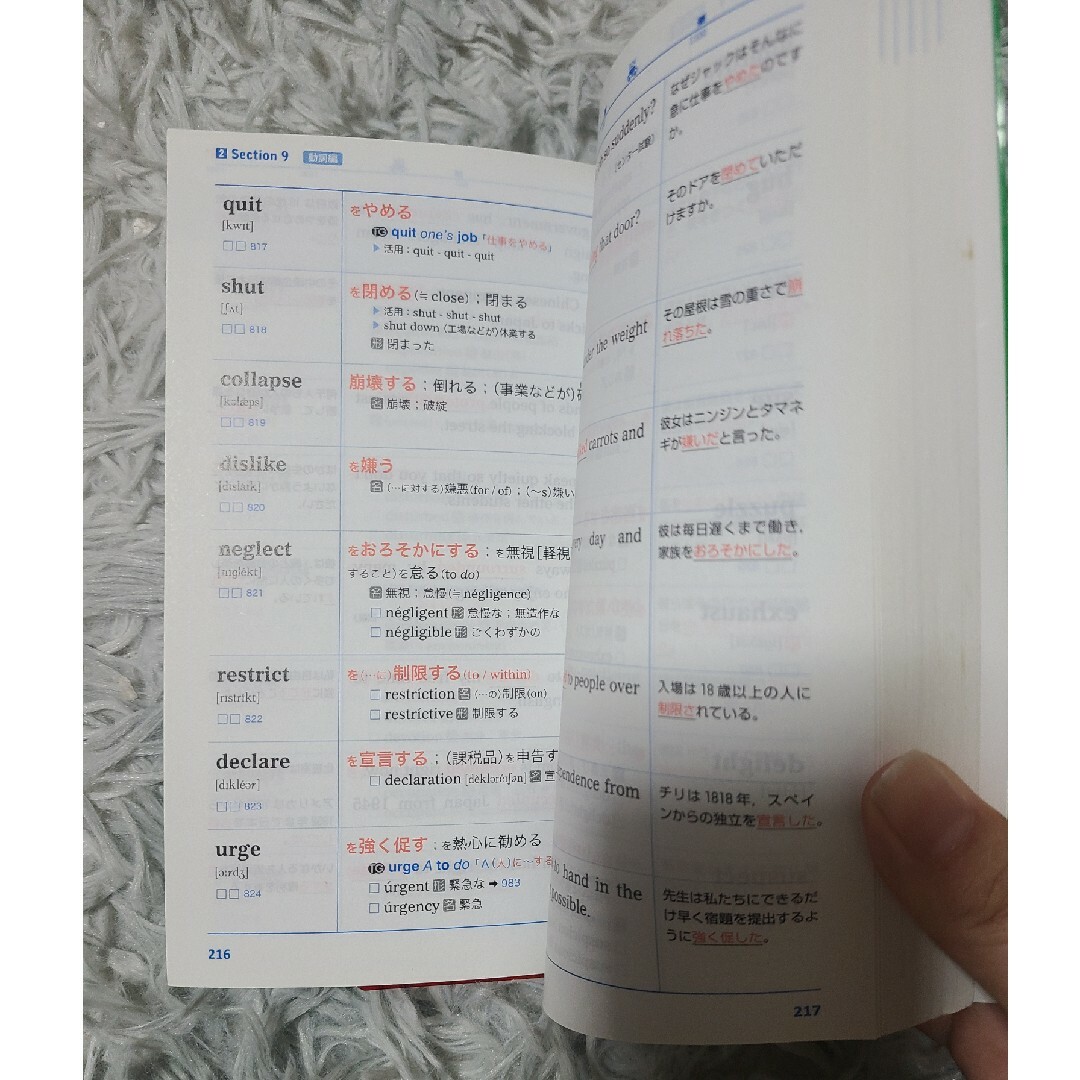 2 Section 9 動詞編
quit
[kwɪt]
□□ 817
をやめる
TG quit one's job「仕事をやめる」
▶ 活用:quit - quit - quit
shut
[ʃʌt]
□□ 818
を閉める(≒ close);閉まる
▶ 活用:shut - shut - shut
▶ shut down (工場などが)休業する
形 閉まった
collapse
[kəlǽps]
□□ 819
崩壊する;倒れる;(事業などが)
名 崩壊;破綻
dislike
[dɪsláɪk]
□□ 820
を嫌う
名 (…に対する)嫌悪(for / of);(~s)嫌い
neglect
[nɪglékt]
□□ 821
をおろそかにする;を無視[軽視
すること)を怠る(to do)
名 無視;怠慢(≒ négligence)
□ négligent 形 怠慢な;無造作な
□ négligible 形 ごくわずかの
restrict
[rɪstríkt]
□□ 822
を(…に)制限する(to / within)
□ restríction 名 (…の)制限(on)
□ restríctive 形 制限する
declare
[dɪkléər]
□□ 823
を宣言する;(課税品)を申告す
□ declaration [dèkləréɪʃən] 名 宣
urge
[əːrdʒ]
□□ 824
を強く促す;を熱心に勧める
TG urge A to do「A(人)に…する
□ úrgent 形 緊急な ➡ 983
□ úrgency 名 緊急
216
so suddenly?
(センター試験)
なぜジャックはそんなに
急に仕事をやめたのです
か。
that door?
そのドアを閉めていただ
けますか。
the weight
その屋根は雪の重さで崩
れ落ちた。
carrots and
彼女はニンジンとタマネ
ギが嫌いだと言った。
day and
彼は毎日遅くまで働き,
家族をおろそかにした。
to people over
入場は18歳以上の人に
制限されている。
pendence from
チリは1818年,スペイ
ンからの独立を宣言した。
to hand in the
possible.
先生は私たちにできるだ
け早く宿題を提出するよ
うに強く促した。
217